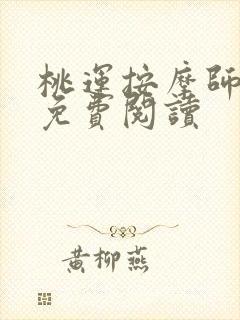 桃運按摩師
免費閱讀
黃柳燕